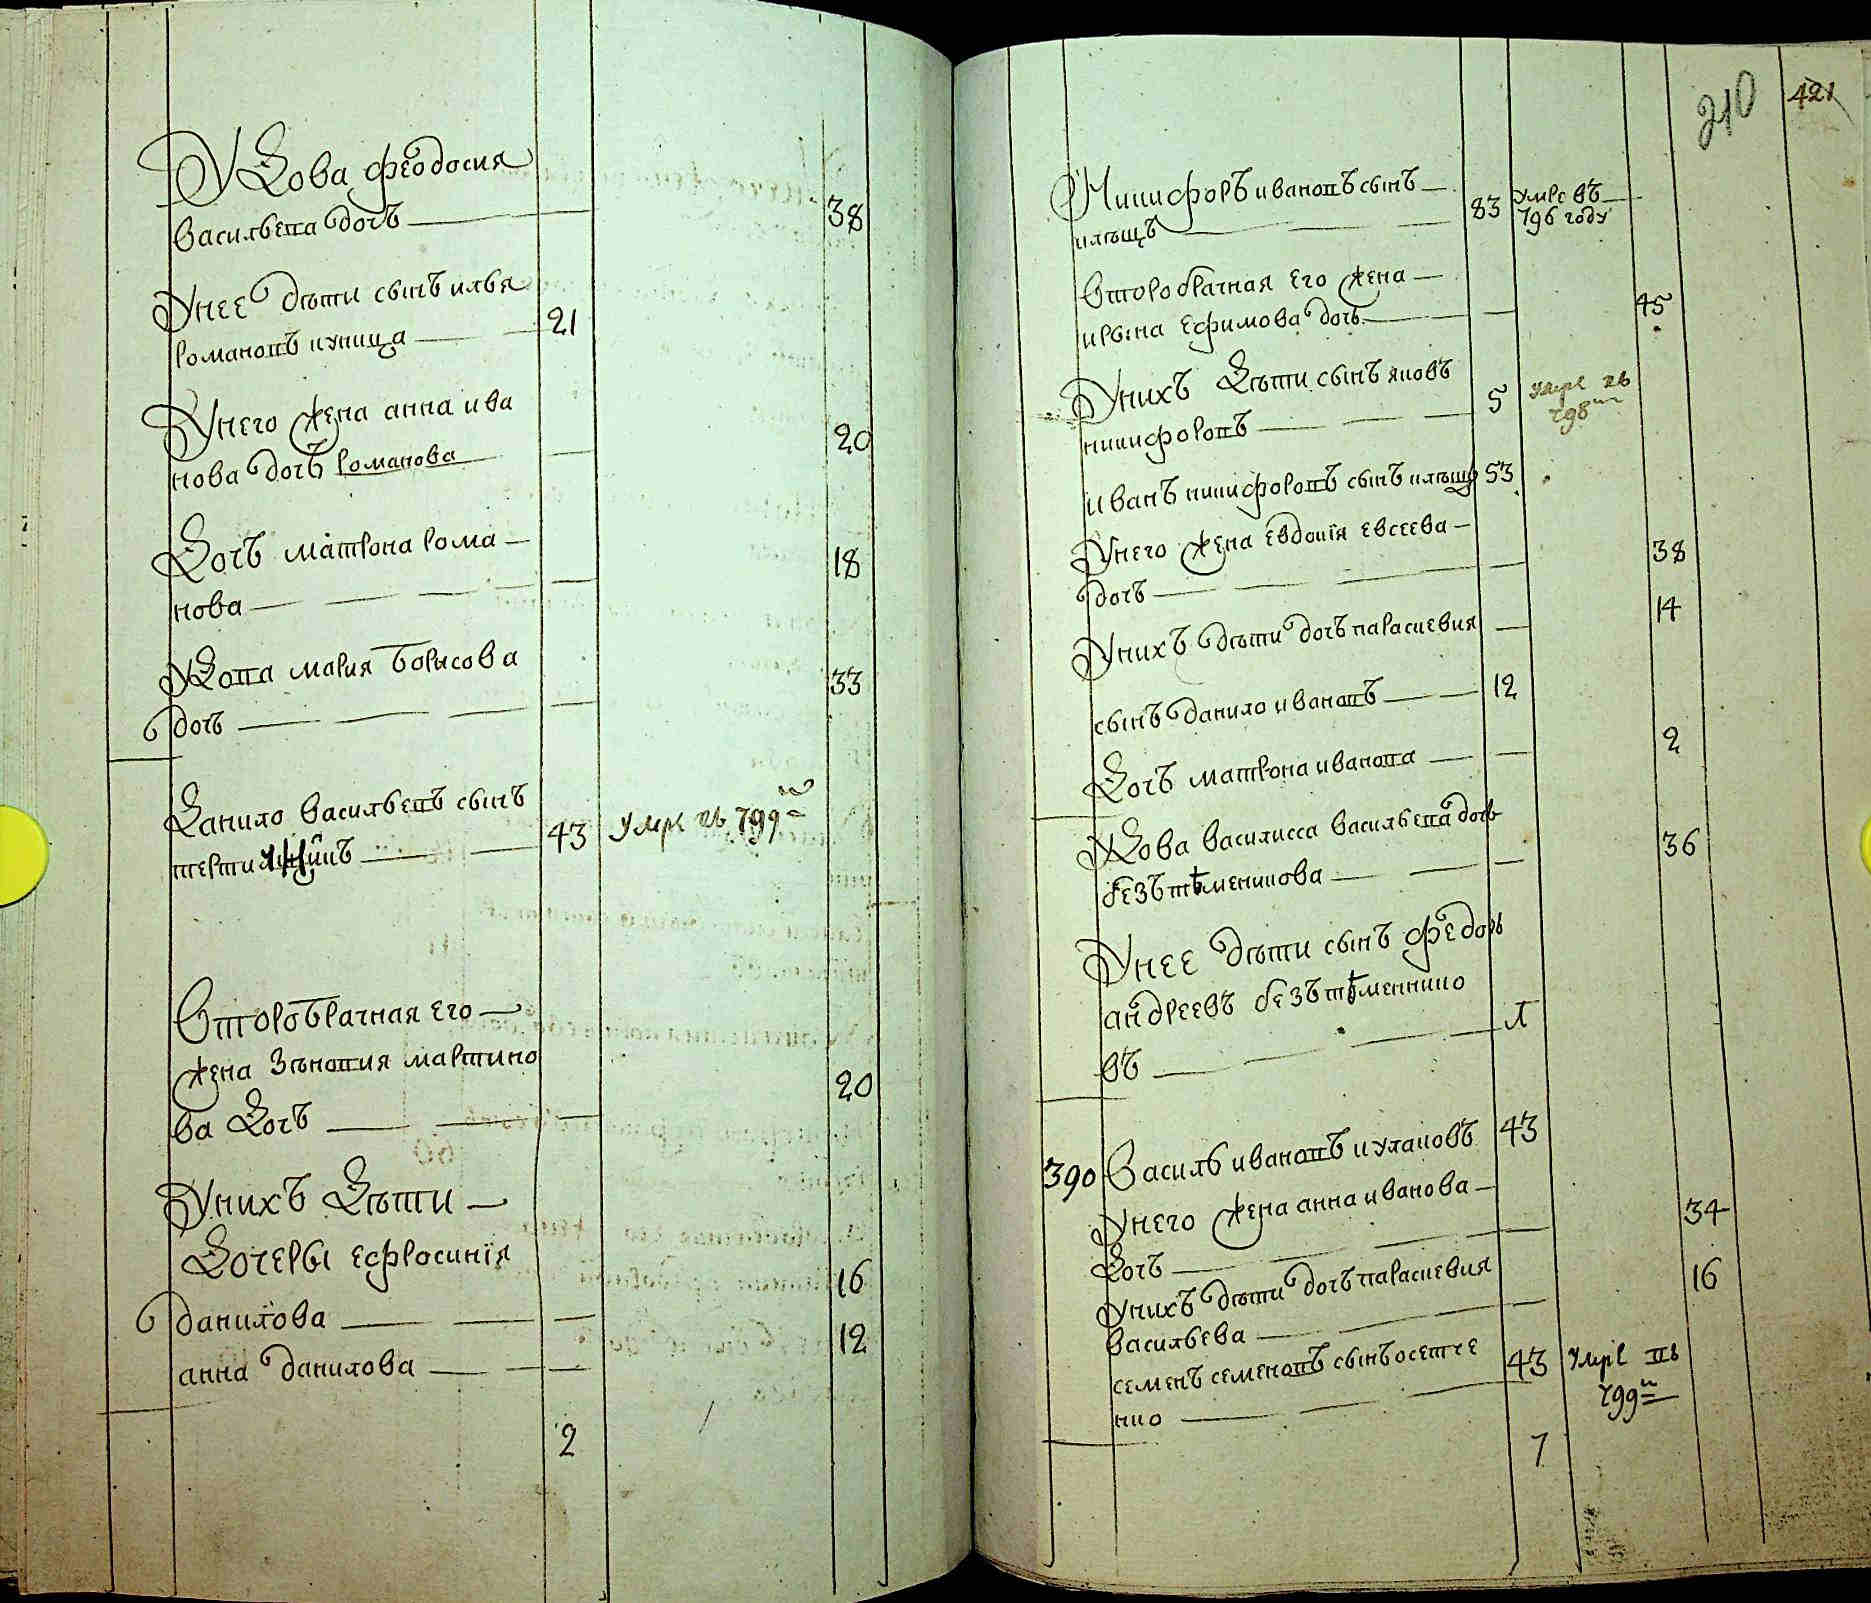 Вдова феодосия
васильева дочь — 38
У нее дѣти сынъ илья
романовъ куница — 21
У него жена анна ива
нова дочь романова — 20
Дочь матрона рома —
нова — 18
Вдова мария борисова
дочь — 33
Данило васильевъ сынъ
43 умре въ 799м
Второбрачная его —
жена зѣновия мартино
ва дочь — 20
У нихъ дѣти —
Дочеры ефросинія
данилова — 16
анна данилова — 12
2
210 421
Никифоръ ивановъ сынъ —
83 умре въ
796 году
второбрачная его жена —
ирына ефимова дочь — 45
У нихъ дѣти сынъ яковъ
никифоровъ — 5 умре въ
798м
иванъ никифоровъ сынъ 53
У него жена евдокія евсеева —
дочь — 38
У нихъ дѣти дочь параскевия — 14
сынъ данило ивановъ — 12
Дочь матрона иванова — 2
Вдова василисса васильева дочь
безътѣменикова — 36
У нее дѣти сынъ федоръ
андреевъ безътѣменнико
въ — л
390 Василь ивановъ кулаковъ 43
У него жена анна иванова —
дочь — 34
У нихъ дѣти дочь параскевия
васильева — 16
семенъ семеновъ сынъ осетче
нко — 43 умре въ
799м
7